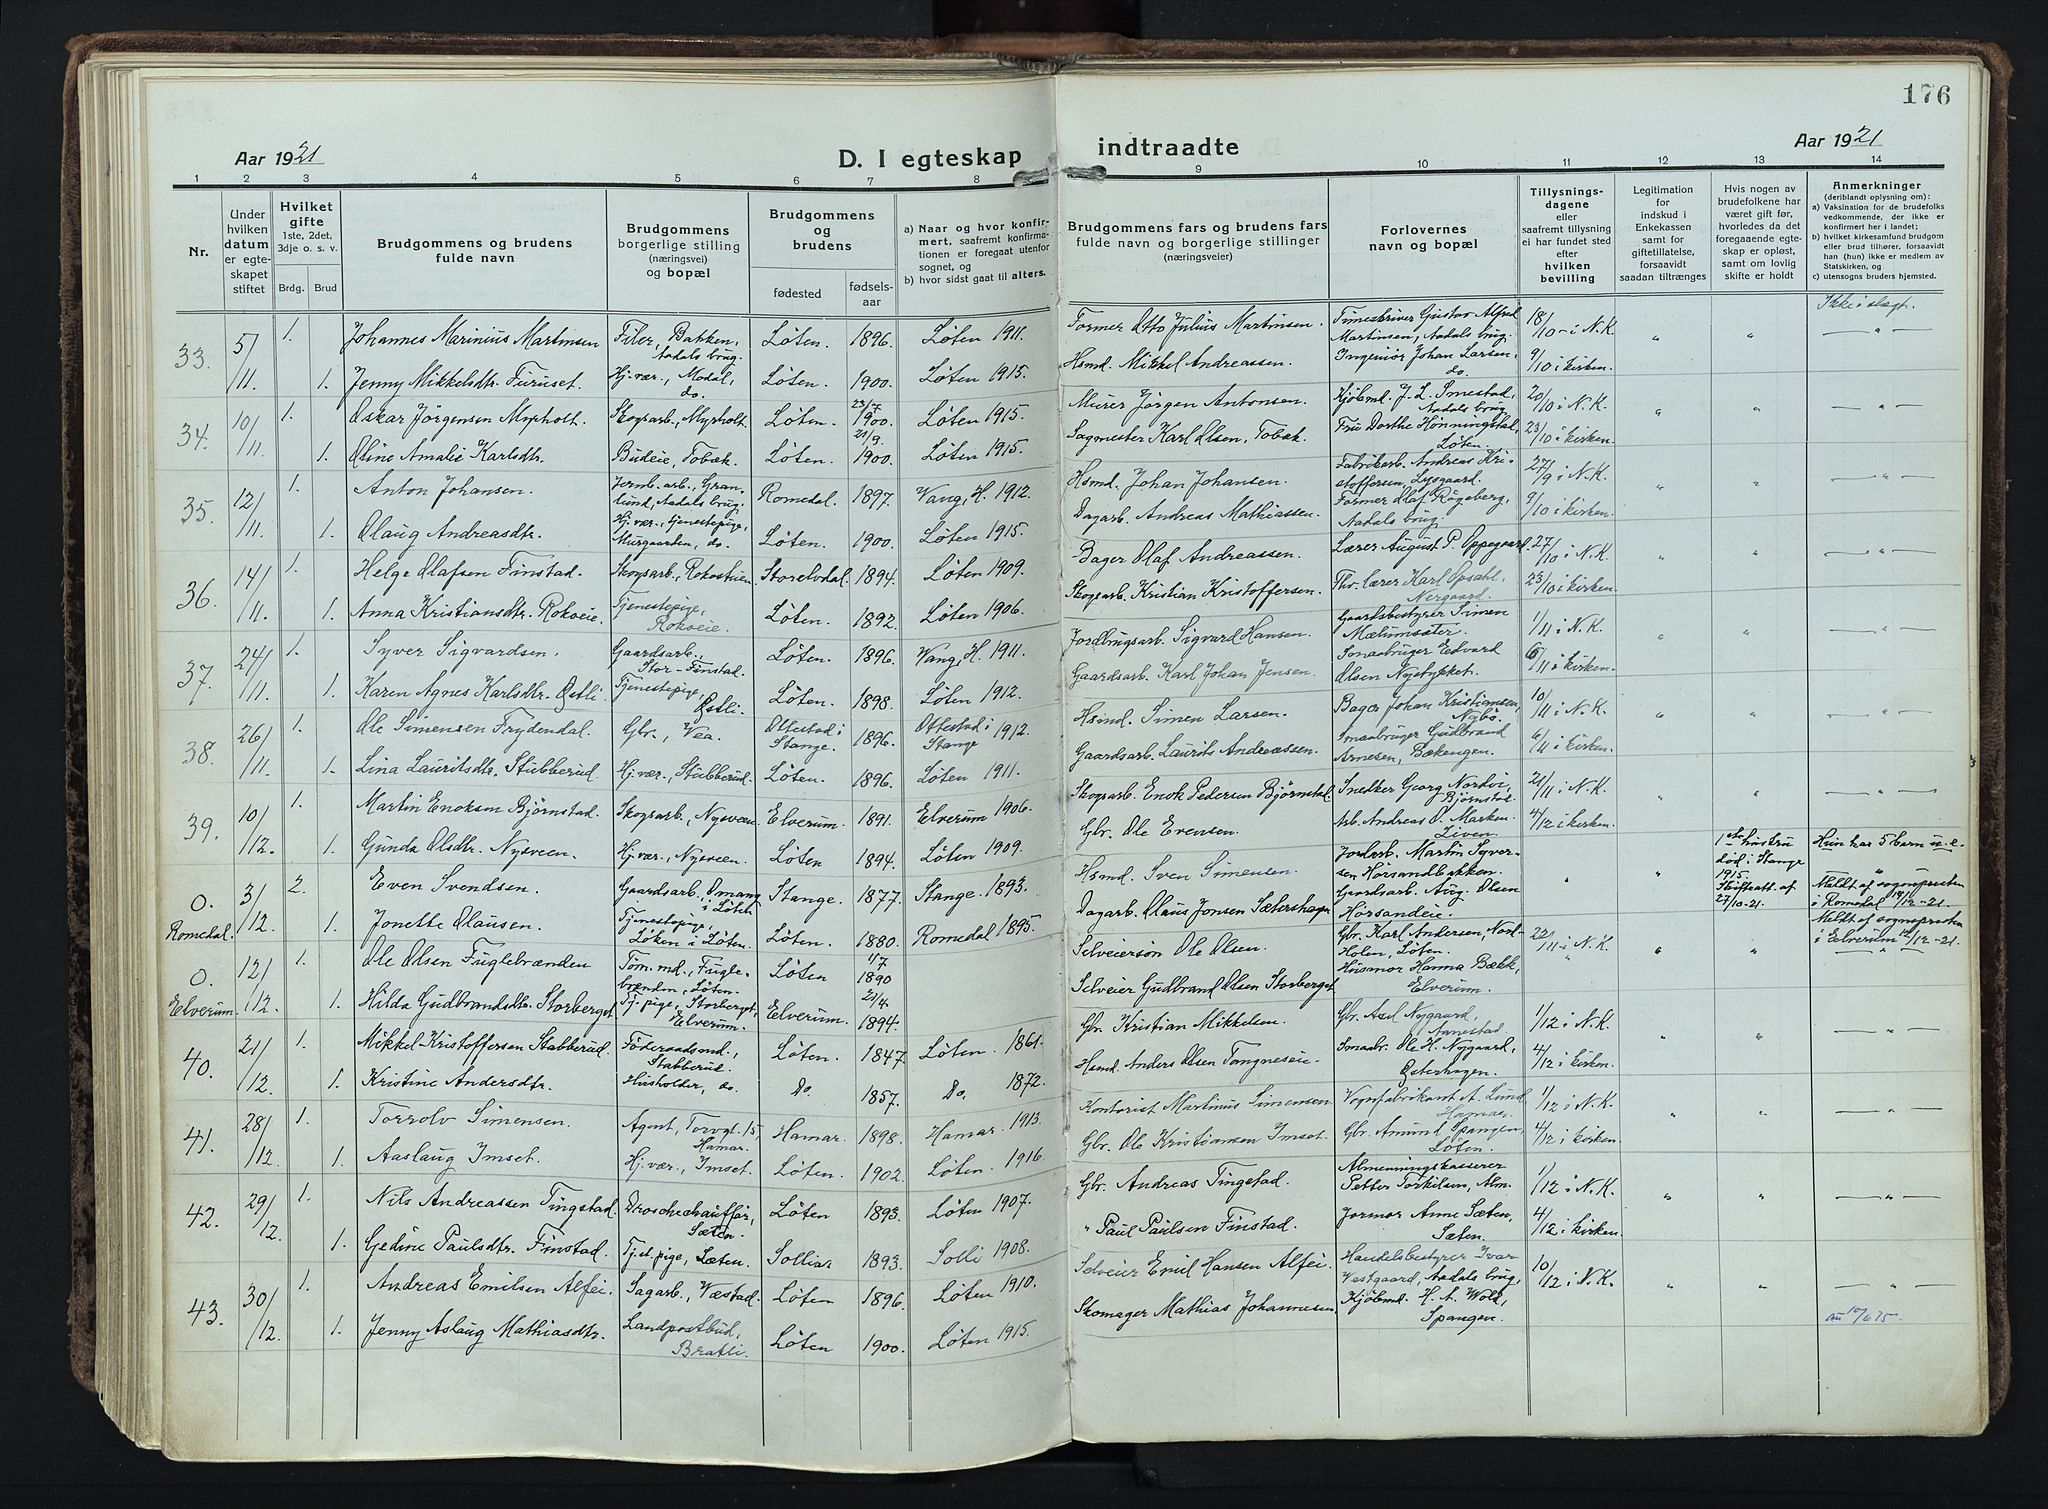 176
Aar 1921
D. I egteskap
indtraadte
Aar 1921
1 2 3 4 5 6 7 8 9 10 11 12 13 14
Nr.
Under hvilken datum er egteskapet stiftet
Hvilket gifte
1ste, 2det, 3dje o. s. v.
Brdg. Brud
Brudgommens og brudens fulde navn
Brudgommens borgerlige stilling (næringsvei) og bopæl
Brudgommens og brudens
fødested
fødselsaar
a) Naar og hvor konfirmert, saafremt konfirmationen er foregaat utenfor sognet, og
b) hvor sidst gaat til alters.
Brudgommens fars og brudens fars fulde navn og borgerlige stillinger (næringsveier)
Forlovernes navn og bopæl
Tillysningsdagene eller saafremt tillysning ei har fundet sted efter hvilken bevilling
Legitimation for indskud i Enkekassen samt for giftetillatelse, forsaavidt saadan tiltrænges
Hvis nogen av brudefolkene har været gift før, hvorledes da det foregaaende egteskap er opløst, samt om lovlig skifte er holdt
Anmerkninger (deriblandt oplysning om):
a) Vaksination for de brudefolks vedkommende, der ikke er konfirmert her i landet;
b) hvilket kirkesamfund brudgom eller brud tilhører, forsaavidt han (hun) ikke er medlem av Statskirken, og
c) utensogns bruders hjemsted.
33. 5/11. 1. Johannes Marinius Martinsen Filer, Bakken, Aadals brug. Løten. 1896. Løten 1911. Former Otto Julius Martinsen. Timeskriver Gustav Alfred Martinsen, Aadals brug. 18/10 - i N.K. " " Ikke i slegt. — " —
1. Jenny Mikkelsdtr. Furuset. Hj. vær., Modal, do. Løten. 1900. Løten 1915. Hsmd. Mikkel Andreassen. Ingeniør Johan Larsen, do. 9/10 i kirken.
34. 10/11. 1. Oskar Jørgensen Myrholt. Skogsarb., Myrholt. Løten. 23/7 1900. Løten 1915. Murer Jørgen Antonsen. Kjøbmd. J. L. Smestad, Aadals brug. 20/10 i N.K. " " — " —
1. Oline Amalie Karlsdtr. Budeie, Tobæk. Løten. 21/9. 1900. Løten 1915. Sagmester Karl Olsen, Tobæk. Fru Dorthe Hønningstad, Løten. 23/10 i kirken.
35. 12/11. 1. Anton Johansen. Jernb. arb., Granlund, Aadals brug. Romedal. 1897. Vang, H. 1912. Hsmd. Johan Johansen. Fabrikarb. Andreas Kristoffersen, Lysgaard. 27/9 i N.K. " " — " —
1. Olaug Andreasdtr. Hj. vær., tjenestepige, Murgaarden, do. Løten. 1900. Løten 1915. Dagarb. Andreas Mathiassen. Former Olaf Røgeberg, Aadals brug. 9/10 i kirken.
36. 14/11. 1. Helge Olafsen Finstad. Skogsarb., Rokostuen. Storelvdal. 1894. Løten 1909. Bager Olaf Andreassen. Lærer August P. Oppegaard. 27/10 i N.K. " " — " —
1. Anna Kristiansdtr. Rokoeie. Tjenestepige, Rokoeie. Løten. 1892. Løten 1906. Skogsarb. Kristian Kristoffersen. Thv. lærer Karl Opsahl, Nergaard. 23/10 i kirken.
37. 24/11. 1. Syver Sigvardsen. Gaardsarb., Stor-Finstad. Løten. 1896. Vang, H. 1911. Jordbrugsarb. Sigvard Hansen. Gaardsbestyrer Simen Mælumsæter. 1/11 i N.K. " " — " —
1. Karen Agnes Karlsdtr. Østli. Tjenestepige, Østli. Løten. 1898. Løten 1912. Gaardsarb. Karl Johan Jensen. Smaabruger Edvard Olsen Nystykket. 6/11 i kirken.
38. 26/11. 1. Ole Simensen Frydendal. Gbr., Vea. Ottestad i Stange. 1896. Ottestad i Stange 1912. Hsmd. Simen Larsen. Bager Johan Kristiansen, Nybø. 10/11 i N.K. " " — " —
1. Lina Lauritsdtr. Stubberud. Hj. vær., Stubberud. Løten. 1896. Løten 1911. Gaardsarb. Laurits Andreassen. Smaabruger Gudbrand Arnesen, Bækengen. 6/11 i kirken.
39. 10/12. 1. Martin Enoksen Bjørnstad. Skogsarb., Nysveen. Elverum. 1891. Elverum 1906. Skogsarb. Enok Pedersen Bjørnstad. Snedker Georg Nordvi, Bjørnstad. 21/11 i N.K. " " — " —
1. Gunda Olsdtr. Nysveen. Hj. vær., Nysveen. Løten. 1894. Løten 1909. Gbr. Ole Evensen. Arb. Andreas O. Marken, Liven. 4/12 i kirken.
0. Romedal. 3/12. 2. Even Svendsen. Gaardsarb., Omang i Løten Stange. 1877. Stange. 1893. Hsmd. Sven Simensen. Jordarb. Martin Syversen Hørsandbakken. " " 1ste hustru død i Stange 1915. Skifteatt. af 27/10-21. Hun har 5 barn u. e. Meldt af sognepresten i Romedal 14/12-21.
1. Jonette Olausen. Tjenestepige, Løken i Løten. Løten. 1880. Romedal 1895. Dagarb. Olaus Jonsen Sætershagen. Gaardsarb. Aug. Olsen Hørsandeie.
0. Elverum. 12/12. 1. Ole Olsen Fuglebrænden Tøm.md., Fuglebrenden, Løten. Løten 1/7 1890 Selveiersøn Ole Olsen. Gbr. Karl Andersen, Nordholen, Løten. 22/11 i N.K. " " Meldt af sognepresten i Elverum 12/12-21. — " —
1. Hilda Gudbrandsdtr. Storberget. Tj. pige, Storberget, Elverum. Elverum. 21/4. 1894. Selveier Gudbrand Olsen Storberget. Husmor Hanna Bækk, Elverum.
40. 21/12. 1. Mikkel Kristoffersen Stabberud. Føderaadsmd., Stabberud. Løten. 1847. Løten. 1861. Gbr. Kristian Mikkelsen. Gbr. Axel Nygaard, Aanestad. 1/12 i N.K. " " — " —
1. Kristine Andersdtr. Husholder, do. Do. 1857. Do. 1872. Hsmd. Anders Olsen Tangneseie. Smaabr. Ole H. Nygaard, Østerhagen. 4/12 i kirken.
41. 28/12. 1. Torrolv Simensen. Agent, Torvgt. 15, Hamar. Hamar. 1898. Hamar. 1913. Kontorist Martinus Simensen. Vognfabrikant A. Lund Hamar. 1/12 i N.K. " " — " —
1. Aaslaug Imset. Hj. vær., Imset. Løten. 1902. Løten. 1916. Gbr. Ole Kristiansen Imset. Gbr. Amund Spangen, Løten. 4/12 i kirken.
42. 29/12. 1. Nils Andreassen Tingstad. Droschechauffør, Sæten. Løten 1893. Løten 1907. Gbr. Andreas Tingstad. Almenningskasserer Petter Torkilsen, Alm. 1/12 i N.K. " " — " —
1. Gedine Paulsdtr. Finstad. Tj. pige, Sæten. Sollia. 1893. Solli 1908. " Paul Paulsen Finstad. Jormor Anne Sæten, Sæten. 4/12 i kirken.
43. 30/12. 1. Andreas Emilsen Alfei. Sagarb., Væstad. Løten 1896. Løten 1910. Selveier Emil Hansen Alfei. Handelsbestyrer Ivar Vestgaard, Aadals brug, 10/12 i N.K. " " — " —
1. Jenny Aslaug Mathiasdtr. Landpostbud, Bratli. Løten 1900. Løten 1915. Skomager Mathias Johannesen Kjøbmd. H. A. Wold, Spangen. au 10/6 75.